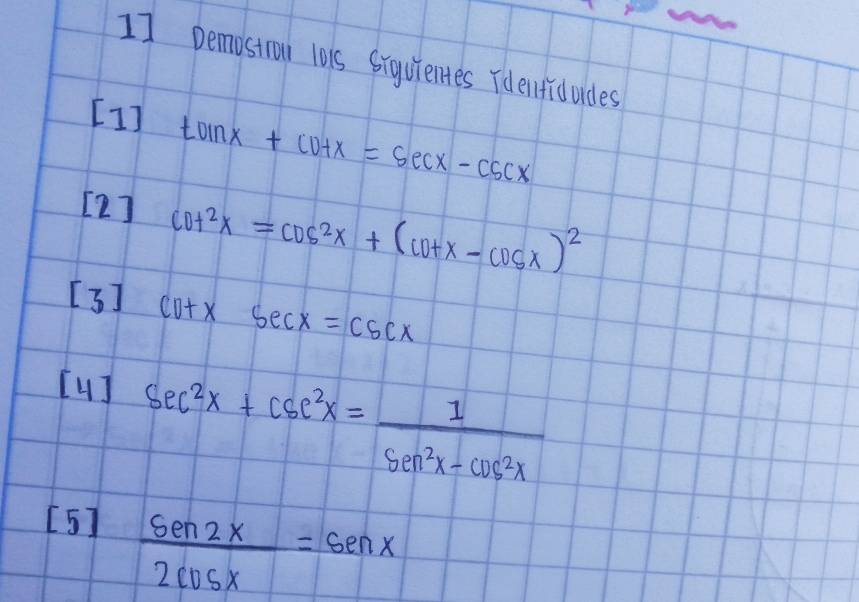 1] Demostrar las siguientes identidades
[1] tanx + cotx = secx - cscx
[2] cot²x = cos²x + (cotx - cosx)²
[3] cotx secx = cscx
[4] sec²x + csc²x = 1 / sen²x - cos²x
[5] sen2x / 2cosx = senx